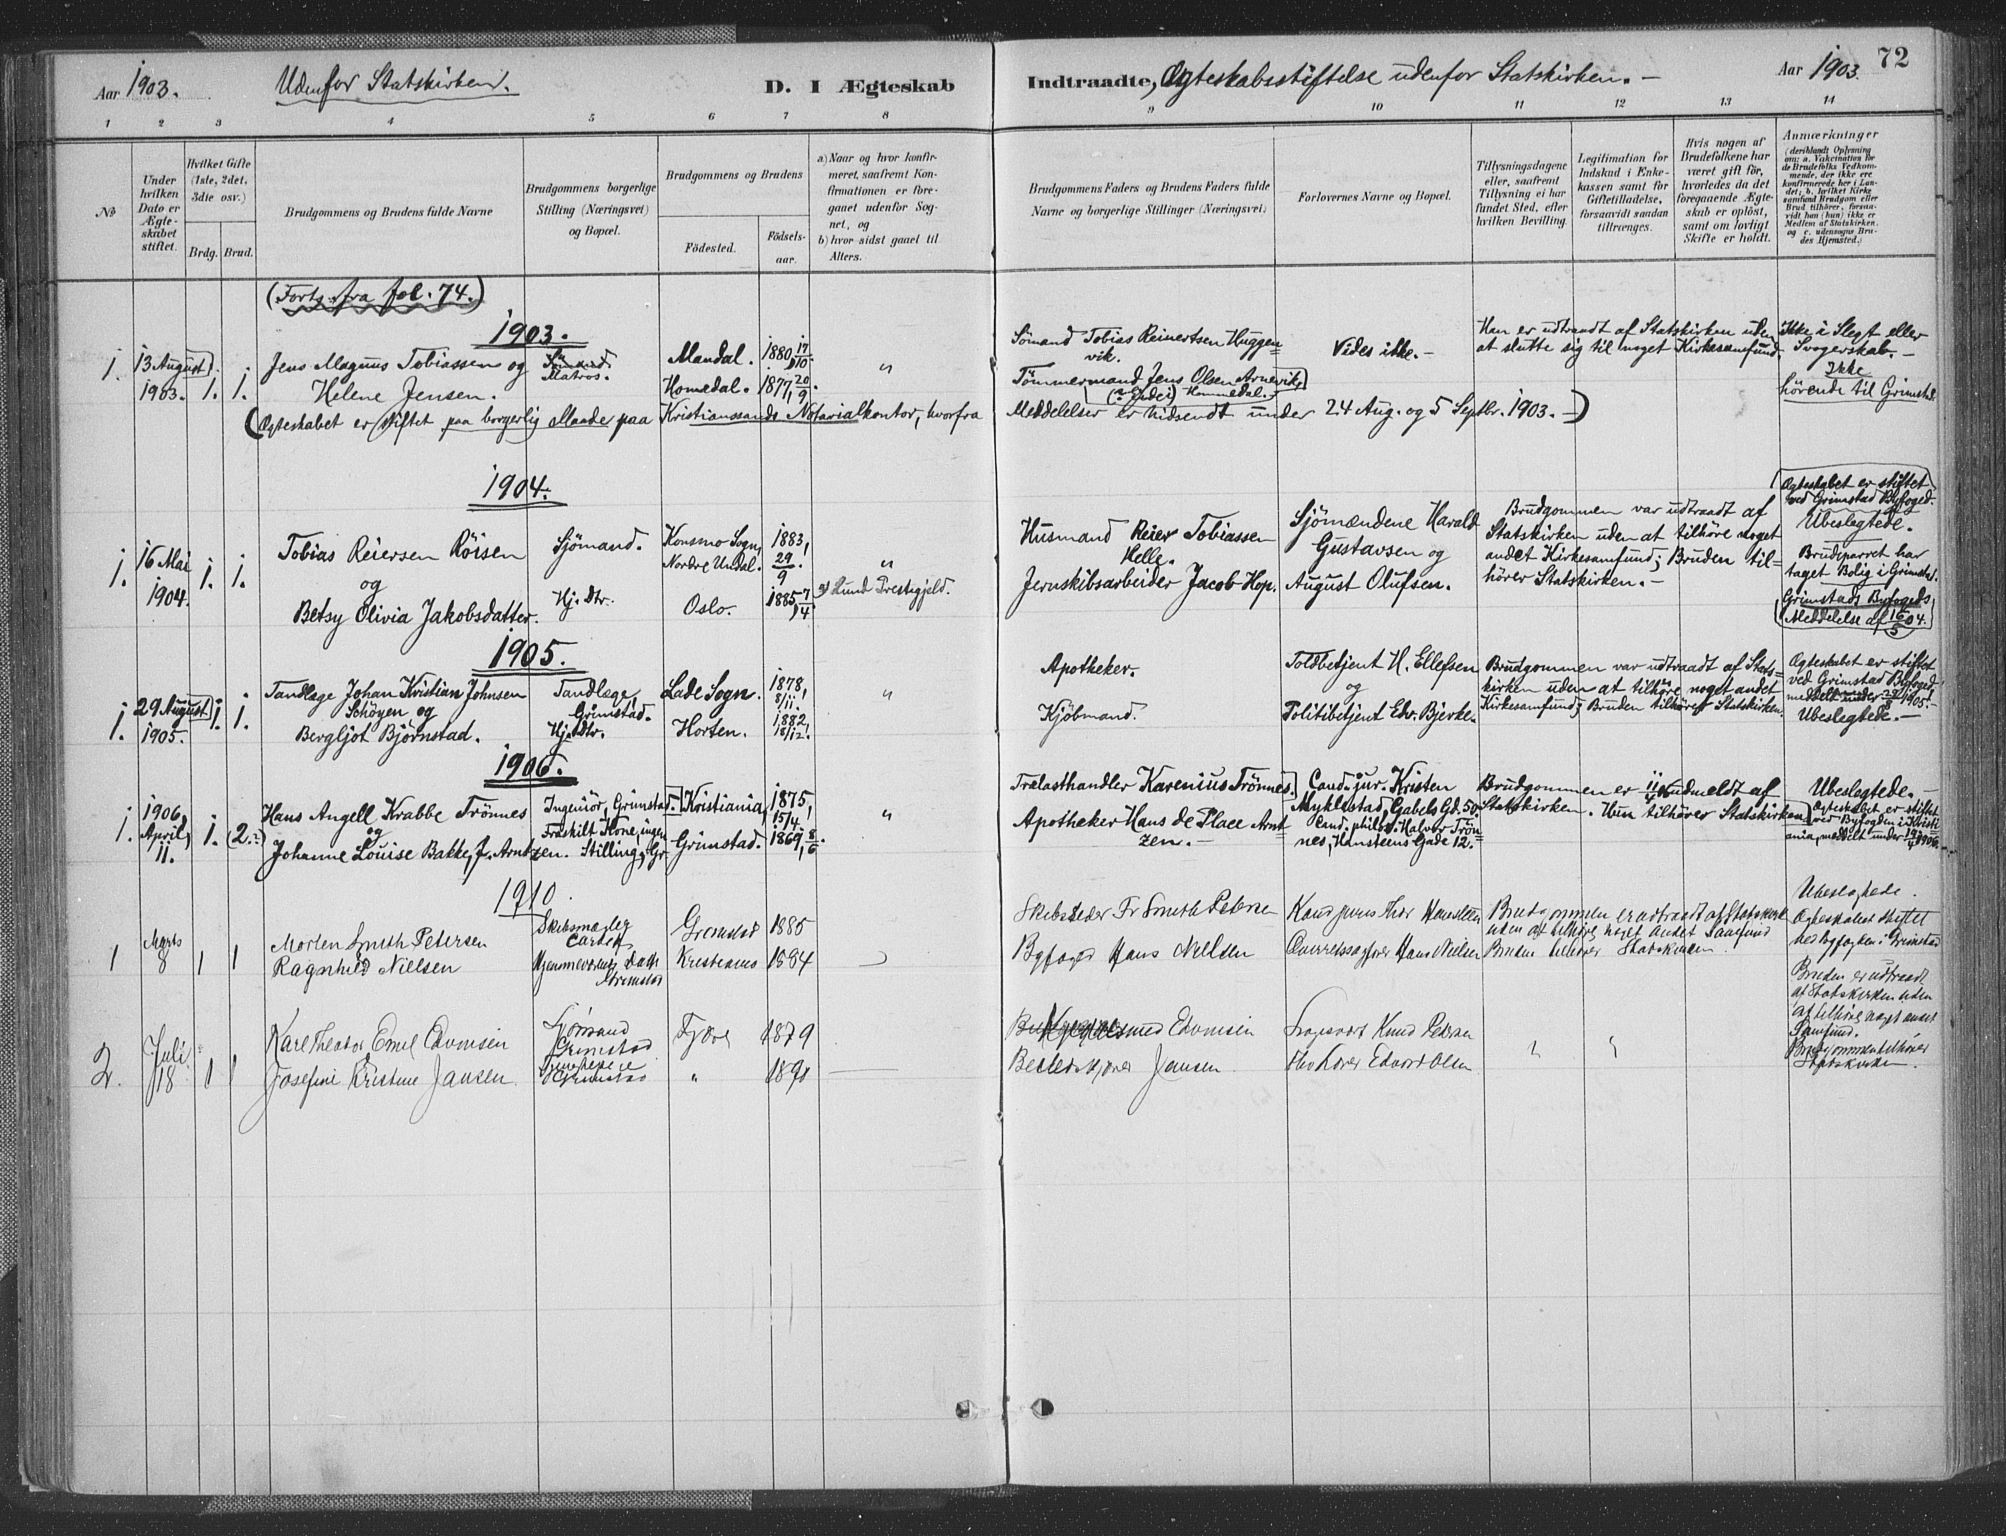 Aar 1903. Udenfor Statskirken. D. I Ægteskab Indtraadte, Ægteskabsstiftelse udenfor Statskirken. — Aar 1903. 72
1 2 3 4 5 6 7 8 9 10 11 12 13 14
No
Under hvilken Dato er Ægteskabet stiftet.
Hvilket Gifte (1ste, 2det, 3die osv.)
Brdg. Brud.
Brudgommens og Brudens fulde Navne
Brudgommens borgerlige Stilling (Næringsvei) og Bopæl.
Brudgommens og Brudens
Fødested. Fødselsaar.
a) Naar og hvor konfirmeret, saafremt Konfirmationen er foregaaet udenfor Sognet, og
b) hvor sidst gaaet til Alters.
Brudgommens Faders og Brudens Faders fulde Navne og borgerlige Stillinger (Næringsvei)
Forlovernes Navne og Bopæl.
Tillysningsdagene eller, saafremt Tillysning ei har fundet Sted, efter hvilken Bevilling
Legitimation for Indskud i Enkekassen samt for Giftetilladelse, forsaavidt saadan tiltrænges.
Hvis nogen af Brudefolkene har været gift før, hvorledes da det foregaaende Ægteskab er opløst, samt om lovligt Skifte er holdt.
Anmærkninger
(deriblandt Oplysning om: a. Vakcination for de Brudefolks Vedkommende, der ikke ere konfirmerede her i Landet; b. hvilket Kirkesamfund Brudgom eller Brud tilhører, forsaavidt han (hun) ikke er Medlem af Statskirken, og c. udensogns Brudes Hjemsted.)
(Forts. fra fol. 74.)
1903.
1. 13 August 1903. 1. 1.
Jens Magnus Tobiassen og
Helene Jensen.
Matros.
Mandal. 1880 17/10.
Homedal. 1877, 20/9.
"
Sømand Tobias Reinertsen Huggenvik.
Tømmermand Jens Olsen Arnevik,
Hommedal.
Vides ikke. —
Han er udtraadt af Statskirken uden
at slutte sig til noget Kirkesamfund
Ikke i Slegt eller
Svogerskab. —
Ikke
hørende til Grimstad.
(Ægteskabet er stiftet paa borgerlig Maade paa Kristianssands Notarialkontor, hvorfra Meddelelser er hidsendt under 24 Aug. og 5 Septbr. 1903. —)
1904.
1. 16 Mai 1904. 1. 1.
Tobias Reiersen Röisen
og
Betsy Olivia Jakobsdatter.
Sjömand.
Hj. Dtr.
Konsmo Sogn,
Nordre Undal.
Oslo.
1883, 29/9.
1885, 7/4
"
Lund Prestegjeld.
Husmand Reier Tobiassen
Helle.
Jernskibsarbeider Jacob Hop.
Sjömændene Harald
Gustavsen og
August Olufsen.
Brudgommen var udtraadt af
Statskirken uden at tilhöre noget
andet Kirkesamfund; Bruden tilhörer Statskirken. —
Ægteskabet er stiftet
ved Grimstad Byfoged.
Ubeslegtede.
Brudeparret har
taget Bolig i Grimstad.
Grimstads Byfogeds
Meddelelse af 16/5 04.
1905.
1. 29 August 1905. 1. 1.
Tandlæge Johan Kristian Johnsen
Schöyen og
Bergljot Björnstad.
Tandlæge,
Grimstad.
Hj. Dtr.
Lade Sogn.
Horten.
1878, 8/11.
1882, 18/12.
"
Apotheker.
Kjöbmand.
Toldbetjent H. Ellefsen
og
Politibetjent Edv. Bjerke.
Brudgommen var udtraadt af Statskirken uden at tilhöre noget andet
Kirkesamfund; Bruden tilhörer Statskirken.
Ægteskabet er stiftet
ved Grimstad Byfoged,
meddelt under 29/8 1905. —
Ubeslegtede. —
1906.
1. 1906, April, 11. 1. (2.)
Hans Angell Krabbe Trönnes
og
Johanne Louise Bakke, f. Arntzen.
Ingeniör, Grimstad.
Fraskilt Kone, ingen
Stilling, Gr
Kristiania,
Grimstad.
1875, 15/4.
1869, 8/6.
"
Trælasthandler Karenius Trönnes.
Apotheker Hans de Place Arntzen. —
Cand. jur. Kristen
Myklestad, Gabels Gd. 50.
Cand. philos. Halvor Trönnes, Hansteens Gade 12.
Brudgommen er 11/4 06 udmeldt af
Statskirken. Hun tilhörer Statskirken
Ubeslegtede. —
Ægteskabet er stiftet
ved Byfogden i Kristiania, meddelt under 19/4 1906.
1910
1 Marts 8 1 1
Morten Smith Petersen
Ragnhild Nielsen
Skibsmægler
Grimstad
Grimstad 1885
Kristiania 1884
Skibsreder Fr Smith Petersen
Byfoged Hans Nielsen
Overretssagfører Hans Nielsen
Brudgommen er udtraadt af Statskirken
uden at tilhøre noget andet Samfund
Bruden tilhører Statskirken.
Ubeslegtede.
Ægteskabet stiftet
hos byfogden i Grimstad
2. Juli 18 1 1
Karl Theodor Emil Edvinsen
Josefine Kristine Jansen
Sjømand
Grimstad
Grimstad
Fjære 1879
"
Edvinsen
Jansen.
Knud
Edvard Olsen
" "
Bruden er udtraadt
af Statskirken uden
at tilhøre noget andet
Samfund.
Brudgommen tilhører
Statskirken.